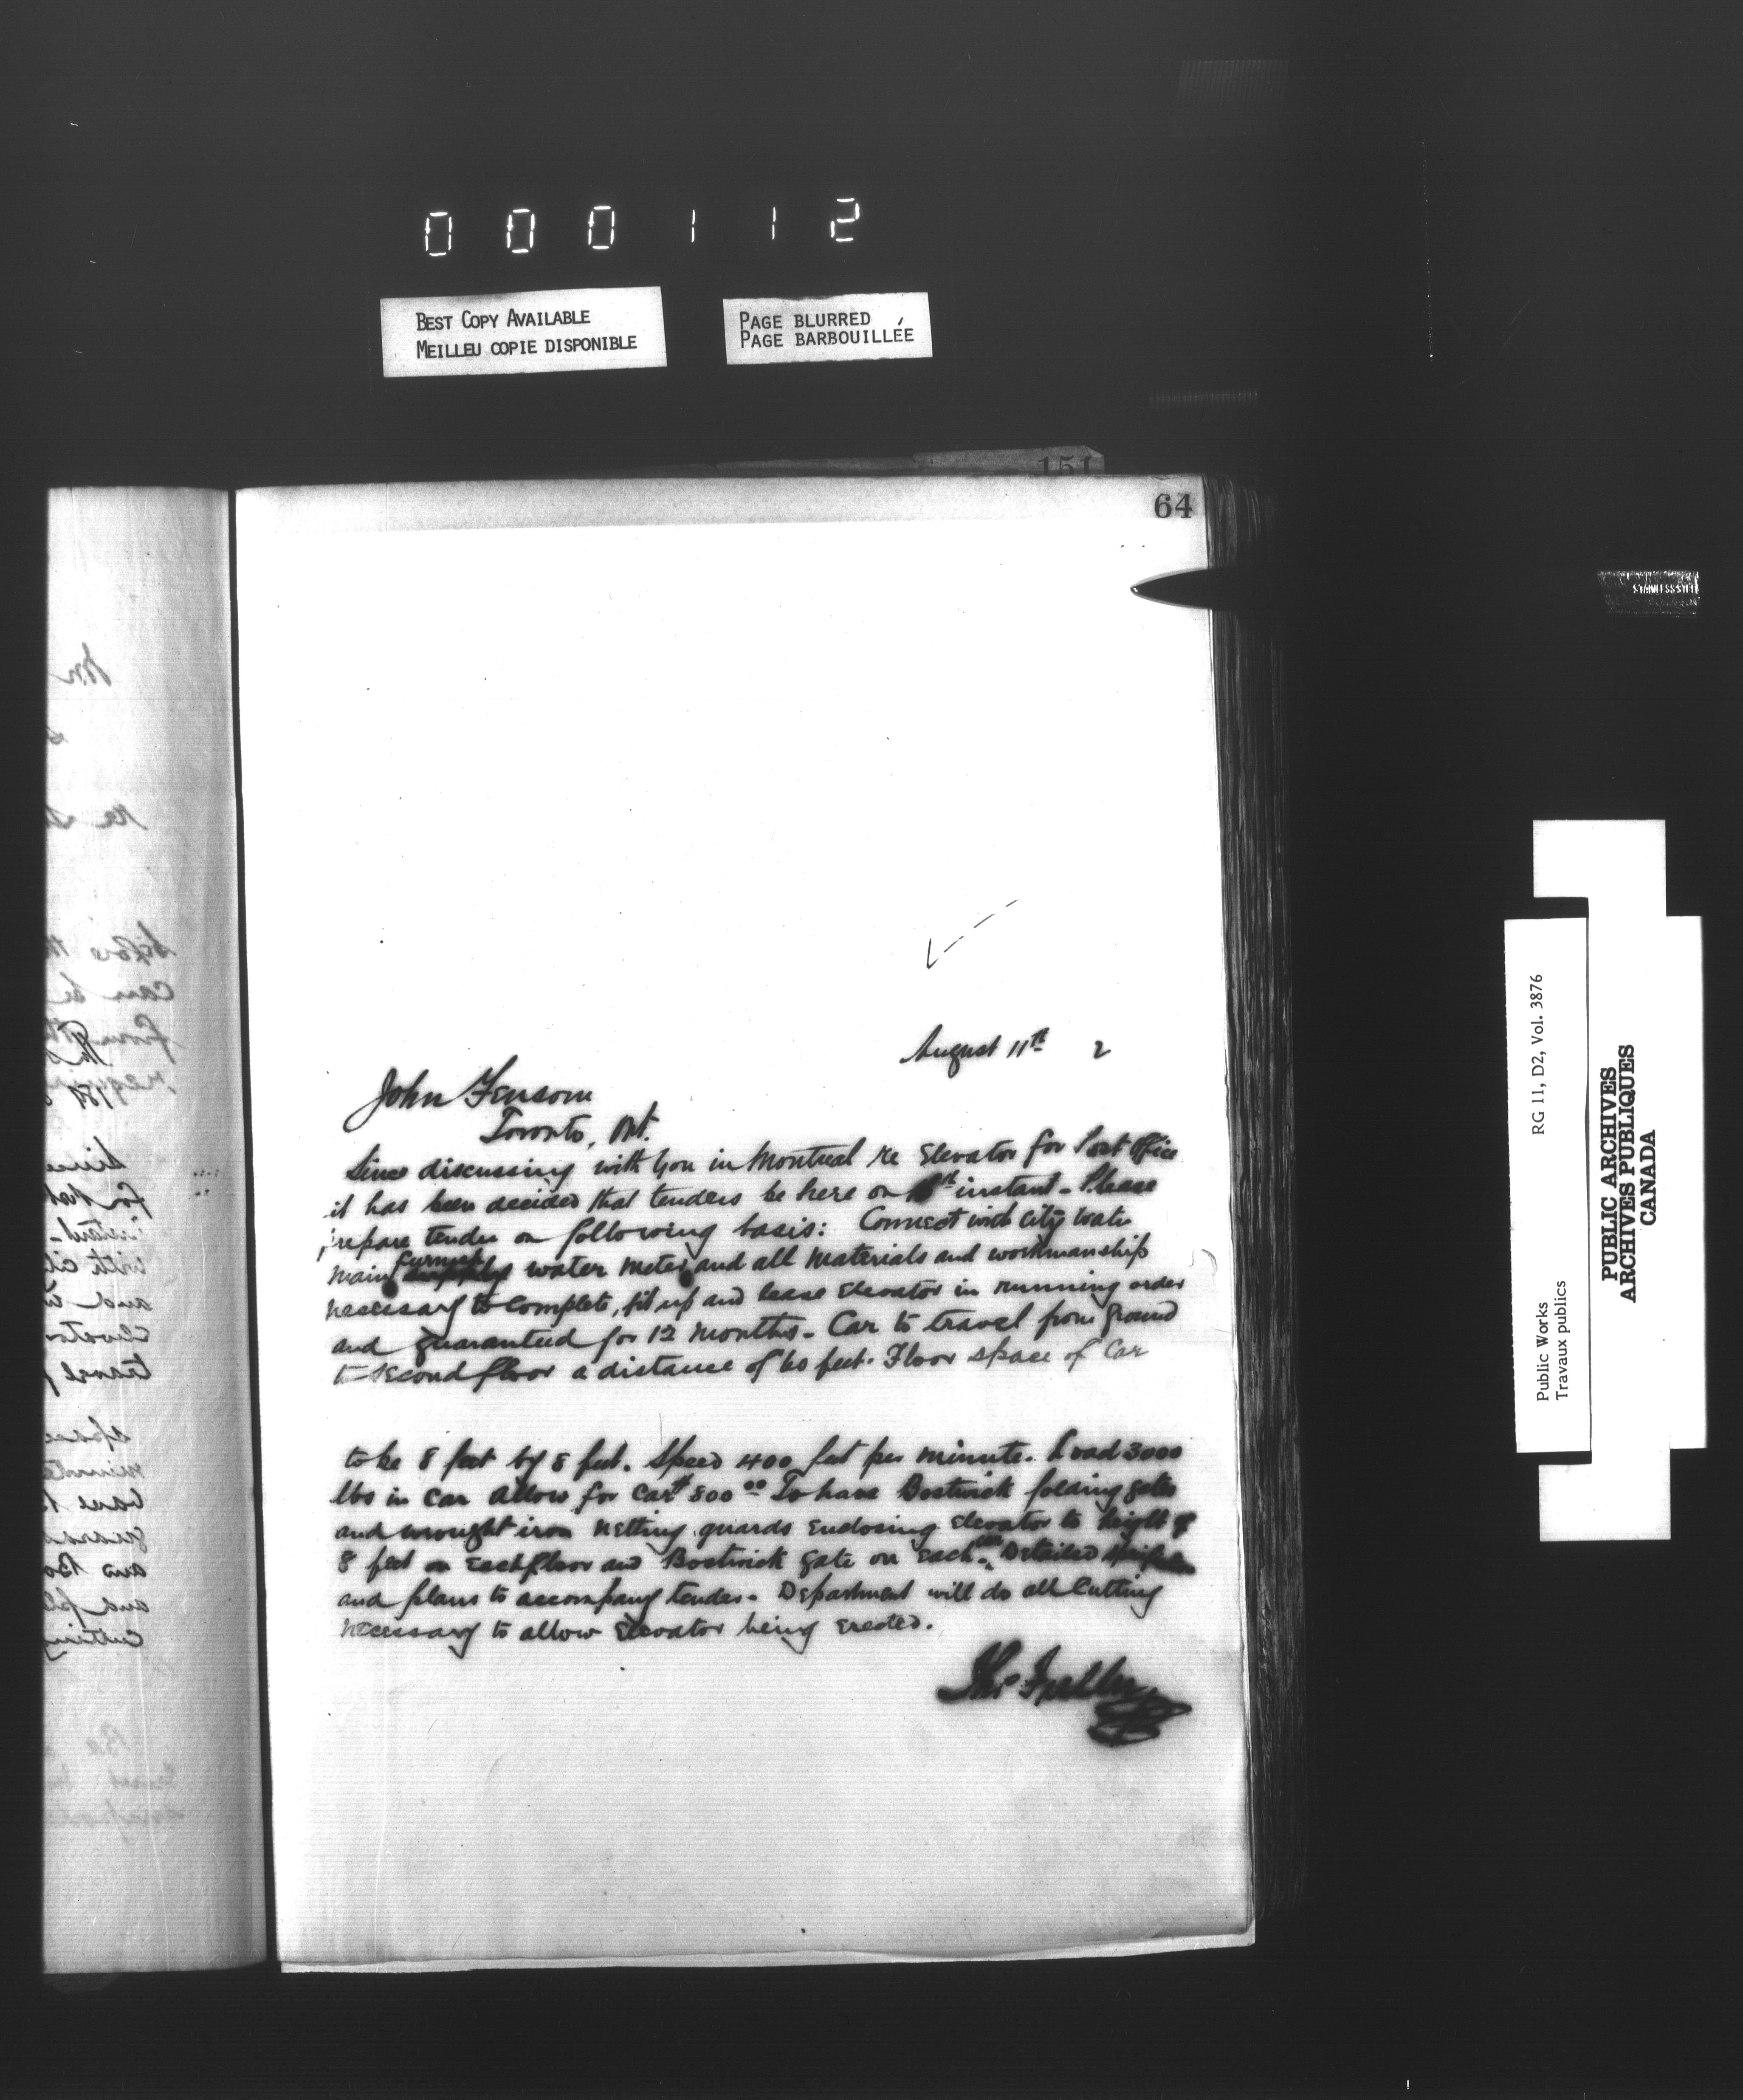 000112
BEST COPY AVAILABLE
MEILLEU COPIE DISPONIBLE
PAGE BLURRED
PAGE BARBOUILLÉE
151
64
August 11th 2
John Fensom
Toronto, Ont.
Since discussing with you in Montreal re Elevator for Post Office
it has been decided that tenders be here on instant - Please
prepare tender on following basis: Connect with city water
main furnish water meter and all materials and workmanship
necessary to complete, fit up and lease Elevator in running order
and guaranteed for 12 months - Car to travel from ground
to second floor a distance of 60 feet. Floor space of Car
to be 8 feet by 8 feet. Speed 400 feet per minute. Load 3000
lbs in car allow for car $ 500 00 To have Bostwick folding gates
and wrought iron netting guards enclosing elevator to height of
8 feet on each floor and Bostwick gate on each. Detailed
and plans to accompany tender - Department will do all cutting
necessary to allow Elevator being erected.
RG 11, D2, Vol. 3876
Public Works
Travaux publics
PUBLIC ARCHIVES
ARCHIVES PUBLIQUES
CANADA
STAINLESS STEEL